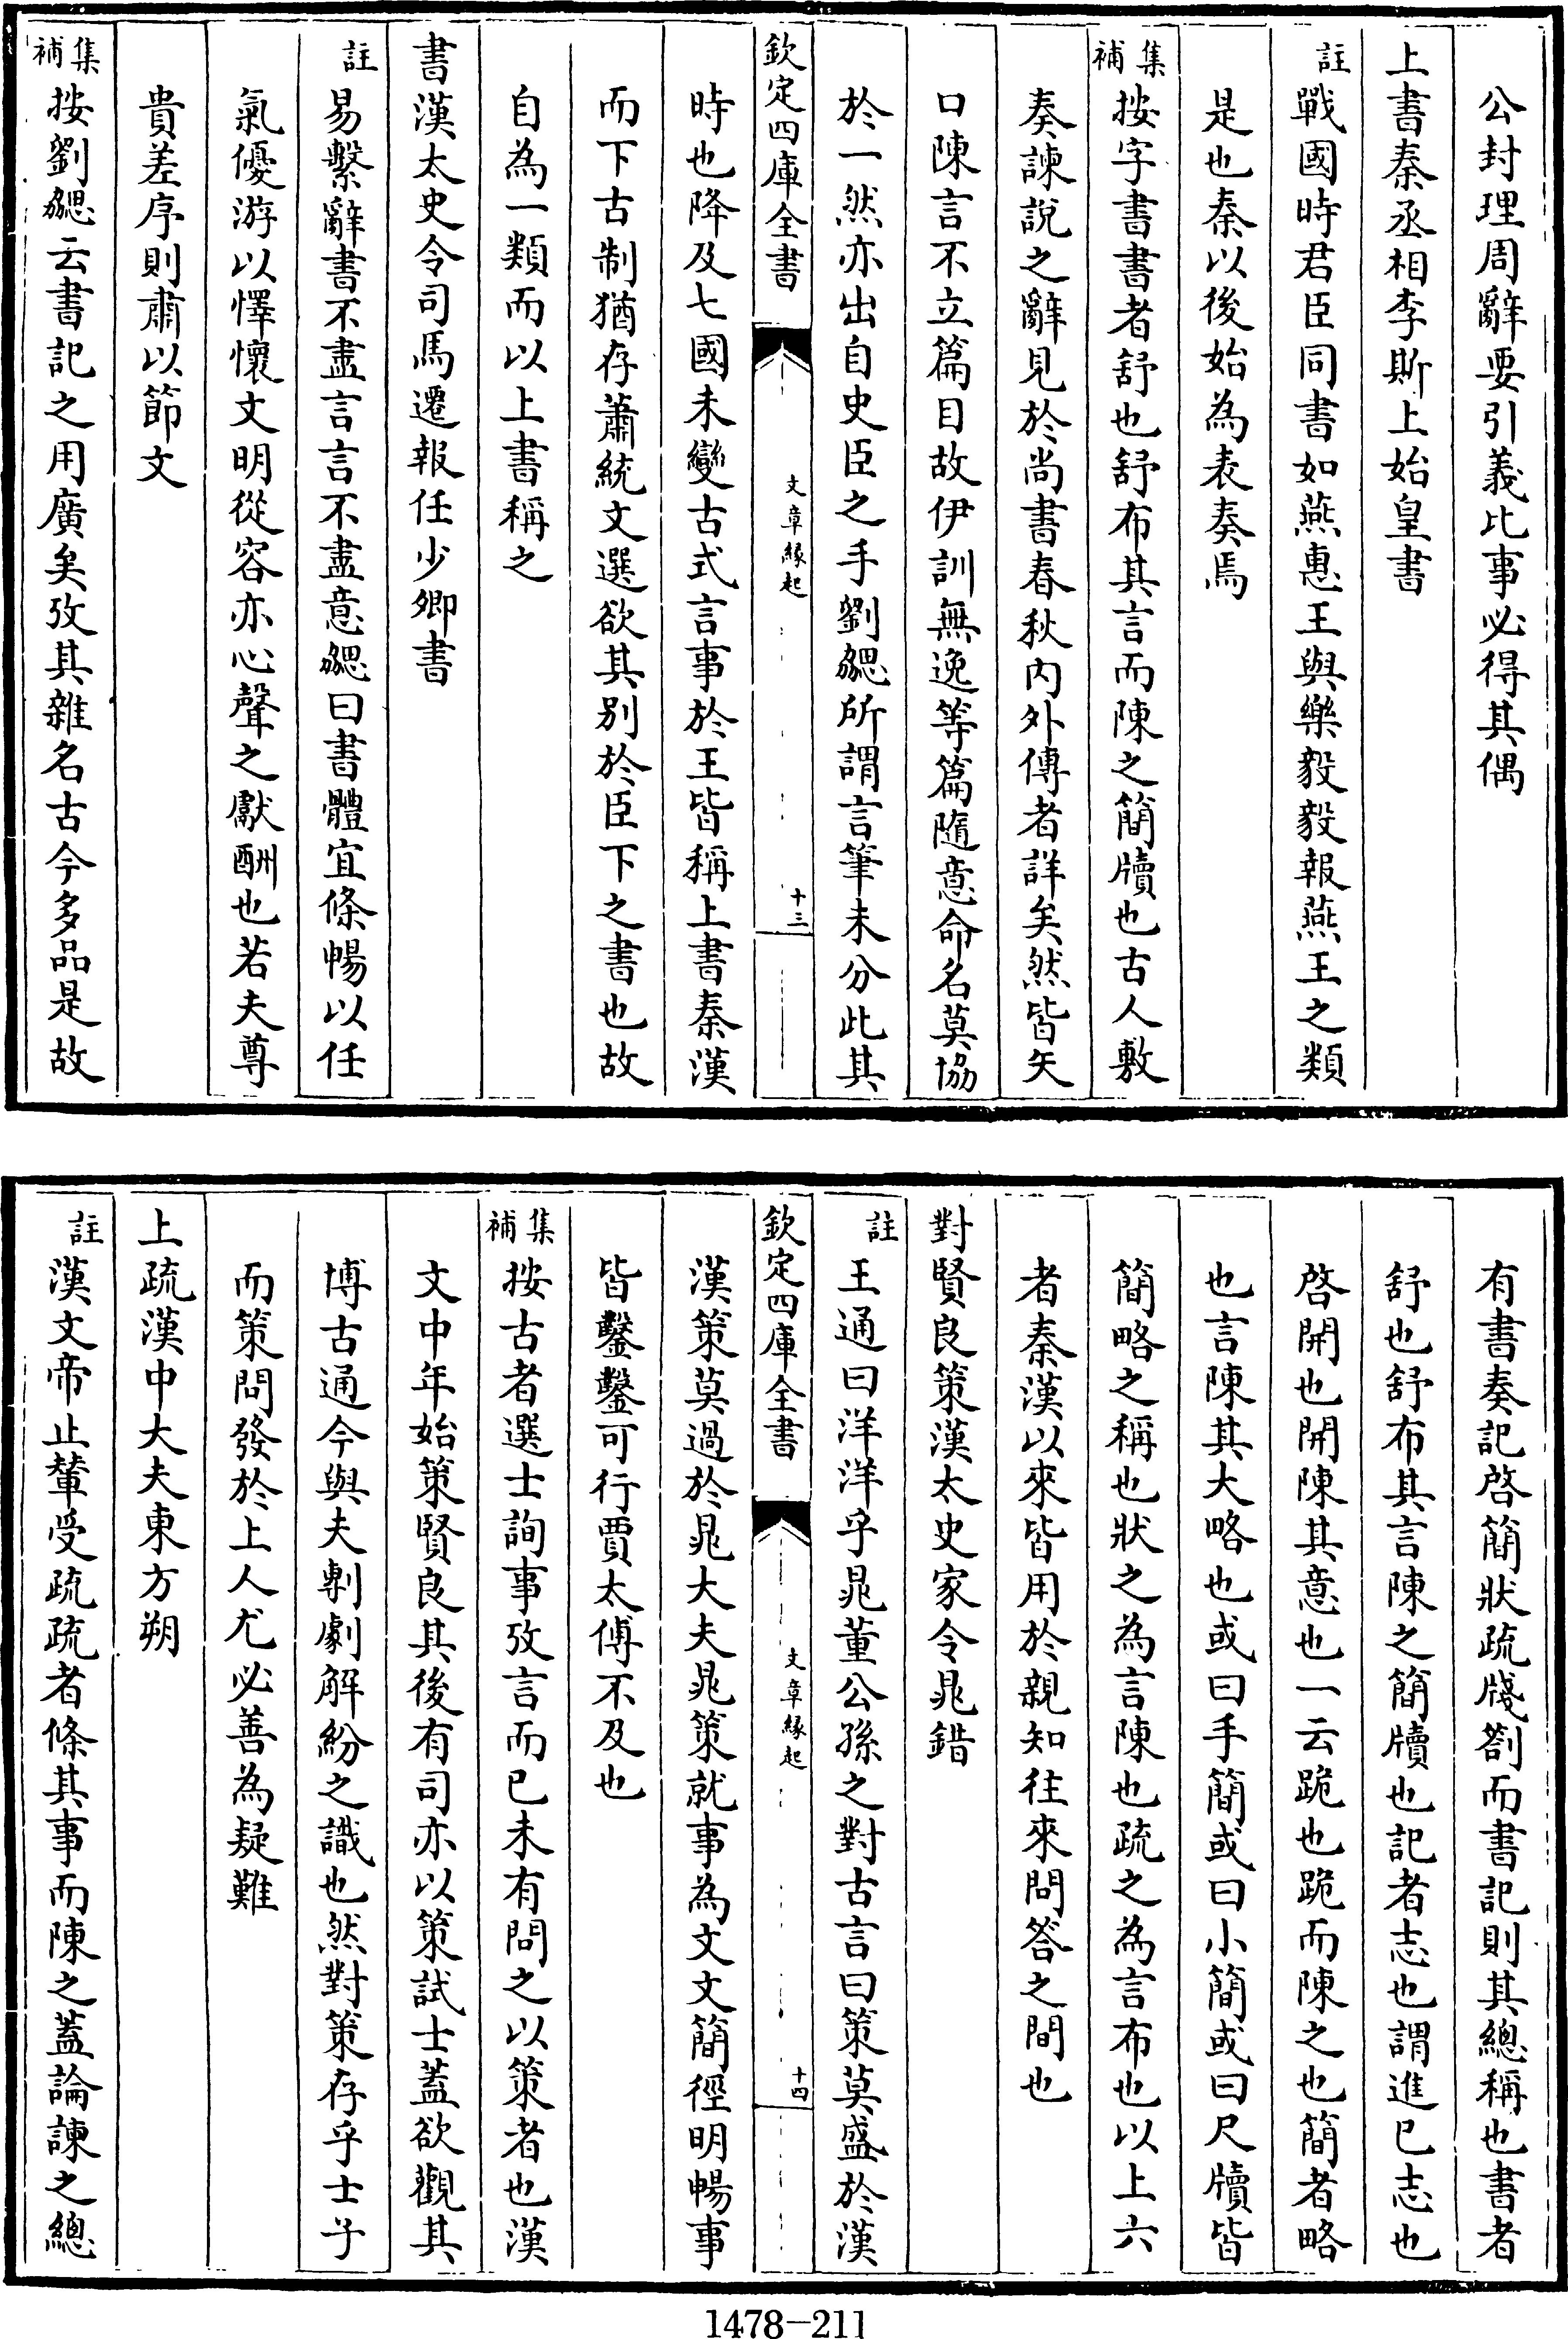 公封理周辭要引義比事必得其偶
上書秦丞相李斯上始皇書
註戰國時君臣同書如燕惠王與樂毅毅報燕王之類
是也秦以後始為表奏焉
集補按字書書者舒也舒布其言而陳之簡牘也古人敷
奏諫說之辭見於尚書春秋内外傳者詳矣然皆矢
口陳言不立篇目故伊訓無逸等篇隨意命名莫協
於一然亦出自史臣之手劉勰所謂言筆未分此其
欽定四庫全書
文章縁起
十三
時也降及七國未變古式言事於王皆稱上書秦漢
而下古制猶存蕭統文選欲其别於臣下之書也故
自為一類而以上書稱之
書漢太史令司馬遷報任少卿書
註易繫辭書不盡言言不盡意勰曰書體宜條暢以任
氣優游以懌懷文明從容亦心聲之獻酬也若夫尊
貴差序則肅以節文
集補按劉勰云書記之用廣矣攷其雜名古今多品是故
有書奏記啓簡狀疏牋劄而書記則其總稱也書者
舒也舒布其言陳之簡牘也記者志也謂進已志也
啓開也開陳其意也一云跪也跪而陳之也簡者略
也言陳其大略也或曰手簡或曰小簡或曰尺牘皆
簡略之稱也狀之為言陳也疏之為言布也以上六
者秦漢以來皆用於親知往來問答之間也
對賢良策漢太史家令鼂錯
註王通曰洋洋乎鼂董公孫之對古言曰策莫盛於漢
欽定四庫全書
文章縁起
十四
漢策莫過於鼂大夫鼂策就事為文文簡徑明暢事
皆鑿鑿可行賈太傅不及也
集補按古者選士詢事攷言而已未有問之以策者也漢
文中年始策賢良其後有司亦以策試士蓋欲觀其
博古通今與夫剸劇解紛之識也然對策存乎士子
而策問發於上人尤必善為疑難
上疏漢中大夫東方朔
註漢文帝止輦受疏疏者條其事而陳之蓋論諫之總
1478-211